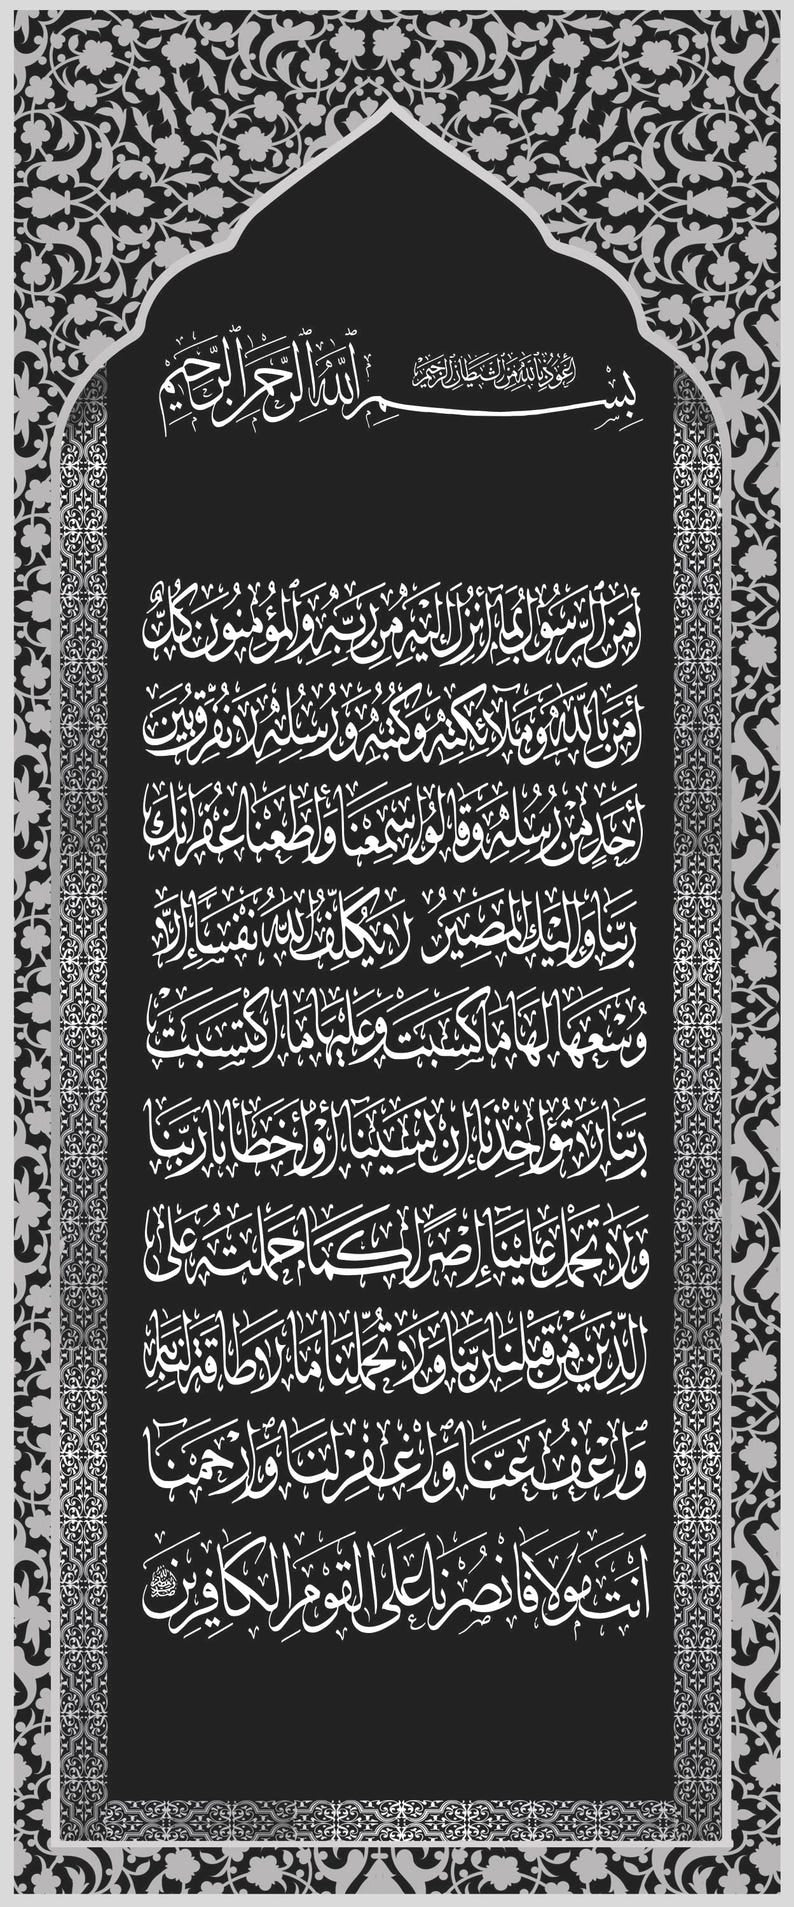 أعوذ بالله من الشيطان الرجيم
بسم الله الرحمن الرحيم
أمَنَ الرَّسُولُ بِمَا أُنْزِلَ إِلَيْهِ مِنْ رَبِّهِ وَالْمُؤْمِنُونَ كُلٌّ
أمَنَ بِاللَّهِ وَمَلَائِكَتِهِ وَكُتُبِهِ وَرُسُلِهِ لَا نُفَرِّقُ بَيْنَ
أَحَدٍ مِنْ رُسُلِهِ وَقَالُوا سَمِعْنَا وَأَطَعْنَا غُفْرَانَكَ
رَبَّنَا وَإِلَيْكَ الْمَصِيرُ لَا يُكَلِّفُ اللَّهُ نَفْسًا إِلَّا
وُسْعَهَا لَهَا مَا كَسَبَتْ وَعَلَيْهَا مَا اكْتَسَبَتْ
رَبَّنَا لَا تُؤَاخِذْنَا إِنْ نَسِينَا أَوْ أَخْطَأْنَا رَبَّنَا
وَلَا تَحْمِلْ عَلَيْنَا إِصْرًا كَمَا حَمَلْتَهُ عَلَى
الَّذِينَ مِنْ قَبْلِنَا رَبَّنَا وَلَا تُحَمِّلْنَا مَا لَا طَاقَةَ لَنَا بِهِ
وَاعْفُ عَنَّا وَاغْفِرْ لَنَا وَارْحَمْنَا
اَنْتَ مَوْلَانَا فَانْصُرْنَا عَلَى الْقَوْمِ الْكَافِرِينَ